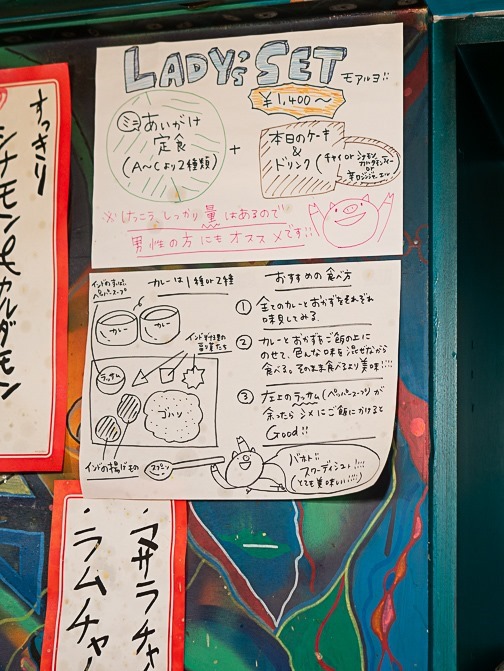 LADY'S SET
モアルヨ!!
¥1,400〜
ミニあいがけ
定食
(A〜Cより2種類)
+
本日のケーキ
&
ドリンク(チャイ or シナモン
カルダモンティー
or
辛口ジンジャーエール
※けっこう、しっかり量はあるので
男性の方にもオススメです!!
インドのすっぱい
ペッパースープ
カレーは1種or2種
カレー
カレー
インド料理の
副菜たち
ラッサム
ゴハン
インドの揚げもの
スプーン
おすすめの食べ方
① 全てのカレーとおかずをそれぞれ
味見してみる。
② カレーとおかずをご飯の上に
のせて、色んな味を混ぜながら
食べる。そのまま食べるより美味!!!!
③ 左上のラッサム(ペッパースープ)が
余ったらシメにご飯にかけると
Good!!
バホト!!
スワーディシュト!!!!
(とても美味しい!!!)
すっきり
シナモン&カルダモン
・マサラチャ
・ラムチャ